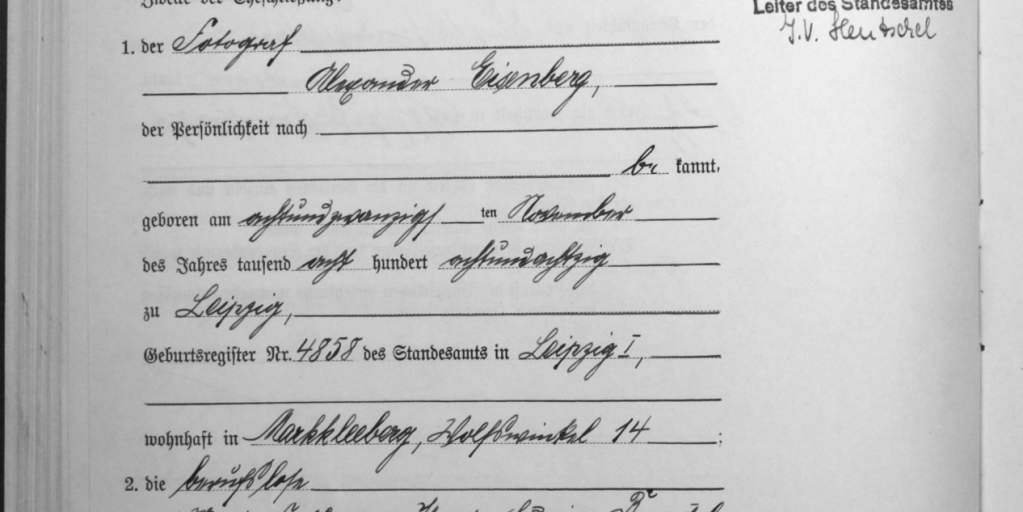 Zwecke der Eheschließung:
Leiter des Standesamtes
J.V. Hentschel
1. der Fotograf
Alexander Eisenberg,
der Persönlichkeit nach
be kannt,
geboren am achtundzwanzigs ten November
des Jahres tausend acht hundert achtundachtzig
zu Leipzig,
Geburtsregister Nr. 4858 des Standesamts in Leipzig I,
wohnhaft in Markkleeberg, Wolfswinkel 14 ;
2. die berufslose